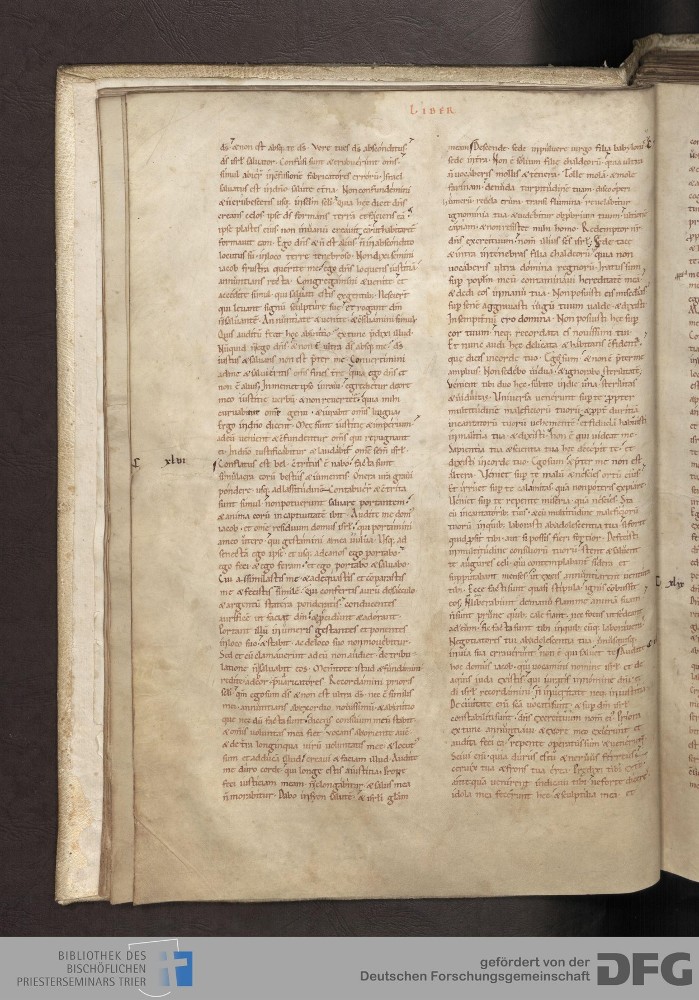 LIBER
ds & non est absq; te ds. Vere tu es ds absconditus
ds isrl salvator. Confusi sunt & erubuerunt oms.
simul abier in confusione fabricatores errorū. Israel
salvatus est in dno salute etna. Non confundemini
& n erubescetis usq; in sclm scli. Quia hec dicit dns
creans celos ipse ds formans terrā & faciens eā.
ipse plastes eius non in vanū creavit eā ut habitaret
formavit eam. Ego dns & n est alius. n in abscondito
locutus sū. in loco terre tenebroso. Non dixi semini
iacob frustra querite me. ego dns loquens iusticiā
annuntians recta. Congregamini & venite et
accedite simul. qui salvati estis ex gentib. Nescierunt
qui levant signū sculpture sue. et rogant dm
n salvantē. Annuntiate & venite & consiliamini simul.
Quis auditū fecit hoc ab initio. ex tunc p̄dixi illud.
Nūquid n ego dns. & non ē ultra ds absq; me. ds
iustus & salvans non est p̄ter me. Convertimini
ad me & salvi eritis oms fines tre. quia ego dns et
non ē alius. In memet ipso iuravi. egredietur de ore
meo iusticie verbū. & non revertet. quia mihi
curvabitur omē genu. & iurabit omis lingua.
Ergo in dno dicent. Mee sunt iusticie & imperium.
ad eū venient & c̄fundentur oms qui repugnant
ei. In dno iustificabitur & laudabit omē semn isrl.
xlvi Conflatus est bel. c̄tritus ē nabo. facta sunt
simulacra eorū bestiis & iumentis. Onera vrā gravi
pondere. usq; ad lassitudinē. Contabuer & c̄trita
sunt simul. non potuerunt salvare portantem.
& anima eorū in captivitatē ibit. Audite me dom
iacob. et omē residuum domus isrl. qui portamini
a meo utero. qui gestamini a mea vulva. Usq; ad
senectā ego ipse. et usq; ad canos ego portabo.
ego feci & ego feram. et ego portabo & salvabo.
Cui assimilastis me & adequastis et cōparastis
me & fecistis similē. Qui confertis aurū de sacculo
& argentū statera ponderatis. conducentes
aurificē ut faciat dm. & p̄cidunt & adorant.
Portant illū in umeris gestantes et ponentes
in loco suo & stabit. ac de loco suo non movebitur.
Sed et cū clamaverint ad eū non audiet. de tribu
latione n salvabit eos. Mem̄tote istud & fundamini
redite p̄varicatores ad cor. Recordamini prioris
scli. qm ego sum ds & non est ultra ds. nec ē similis
mei. annuntians ab exordio novissimū. & ab initio
que nec dū facta sunt. dicens. consilium meū stabit
& omis voluntas mea fiet. vocans ab oriente avē
& de tra longinqua virū voluntatis mee. & locut
sum et adducā illud. creavi & faciam illud. Audite
me duro corde. qui longe estis a iusticia. Prope
feci iusticiam meam. n elongabitur. & salus mea
n morabitur. Dabo in syon salutē. & isrli glam
meam. Descende sede in pulvere virgo filia babylonis
sede in tra. Non ē solium filie chaldeorū. quia ultra
n vocaberis mollis & tenera. Tolle molā. & mole
farinam. denuda turpitudinē tuam. discooperi
umerū. revela crura. transi flumina. revelabitur
ignominia tua. & videbitur obprobrium tuum. ultionē
capiam. & non resistet mihi homo. Redemptor nr
dns exercituum nom illius scs isrl. Sede tace
& intra in tenebras filia chaldeorū. quia non
vocaberis ultra domina regnorū. Iratus sum
sup poplm meū. contaminavi hereditatē meā.
& dedi eos in manu tua. Non posuisti eis misedias.
sup senē aggravasti iugū tuum valde. & dixisti.
In sempiternū ero domina. Non posuisti hec sup
cor tuum. neq; recordata es novissimi tui.
Et nunc audi hec delicata & habitans c̄fident.
que dicis in corde tuo. Ego sum & non ē p̄ter me
amplius. Non sedebo vidua. & ignorabo sterilitatē.
Venient tibi duo hec subito in die una. sterilitas
& viduitas. Universa venerunt sup te propter
multitudinē maleficiorū tuorū. & p̄pt duritiā
incantatorū tuorū vehementē. et fiduciā habuisti
in malitia tua. & dixisti. non ē qui videat me.
Sapientia tua & scientia tua hec decepit te. et
dixisti in corde tuo. Ego sum & p̄ter me non est
altera. Veniet sup te malū & nescies ortū eius.
Et irruet sup te calamitas quā non poteris expiare.
Veniet sup te repente miseria quā nescies. Sta
cū incantatorib tuis. & cū multitudine maleficiorū
tuorū. in quib laborasti ab adolescentia tua. si forte
quid p̄sit tibi. aut si possis fieri fortior. Defecisti
in multitudine consiliorū tuorū. stent & salvent
te augures celi. qui contemplabant sidera et
supputabant menses. ut ex eis annuntiarent ventura
tibi. Ecce facti sunt quasi stipula. ignis cōbussit
eos. N liberabunt animā suam de manu flamme.
n sunt prune quib calefiant. nec focus ut sedeant
ad eum. sic facta sunt tibi in quib cūq; laboraveras.
Negotiatores tui ab adolescentia tua. unusquisq;
in via sua erraverunt. non ē qui salvet te. Audite
hec domus iacob. qui vocamini nomine isrl. et de
aquis iuda existis. qui iuratis in nomine dni. et
di isrl recordamini. n in veritate neq; in iusticia.
De civitate enī scā vocati sunt. & sup dm isrl
constabiliti sunt. dns exercituum nom ei. Priora
ex tunc annuntiavi. & ex ore meo exierunt. et
audita feci ea. repente operatus sum & venerunt.
Scivi enī quia durus es tu. & nervus ferreus
cervix tua. & frons tua erea. Predixi tibi ex tc.
ante quā venirent indicavi tibi. ne forte diceres
idola mea fecerunt hec. & sculptilia mea et
xlix
BIBLIOTHEK DES
BISCHÖFLICHEN
PRIESTERSEMINARS TRIER
gefördert von der
Deutschen Forschungsgemeinschaft
DFG